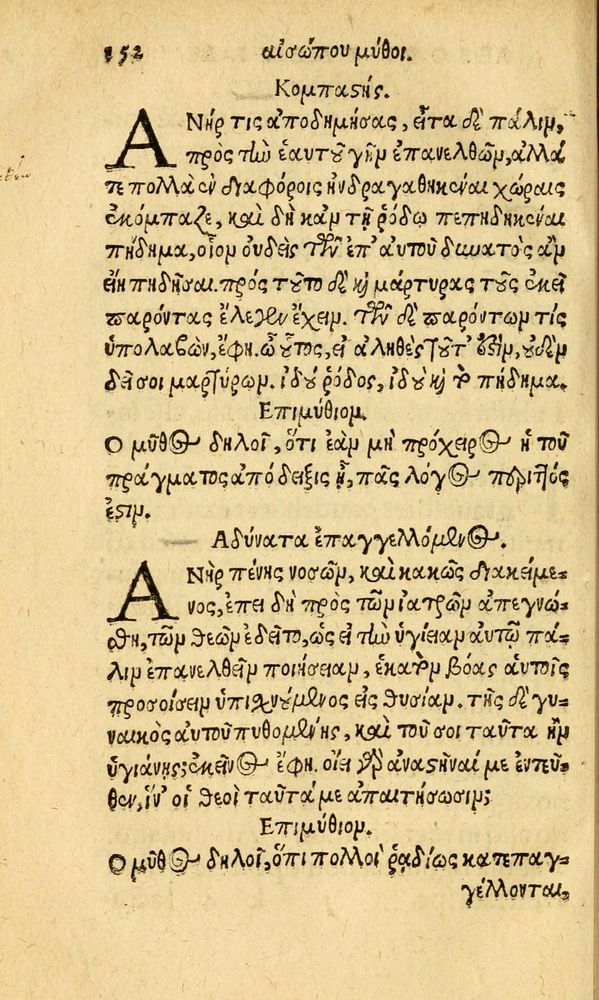 152 αἰσώπου μύθοι.
Κομπαστής.
ΑΝὴρ τις ἀποδημήσας, εἶτα δὲ πάλιν,
πρὸς τὴν ἑαυτοῦ γῆν ἐπανελθὼν, ἀλλά
τε πολλὰ ἐν διαφόροις ἠνδραγαθηκέναι χώραις
ἐκόμπαζε, καὶ δὴ κἀν τῇ ῥόδῳ πεπηδηκέναι
πήδημα, οἷον οὐδεὶς τῶν ἐπ’ αὐτοῦ δυνατὸς ἂν
εἴη πηδῆσαι. πρὸς τοῦτο δὲ καὶ μάρτυρας τοὺς ἐκεῖ
παρόντας ἔλεγεν ἔχειν. τῶν δὲ παρόντων τίς
ὑπολαβὼν, ἔφη. ὦ οὗτος, εἰ ἀληθὲς τοῦτ’ ἐστὶν, οὐδὲν
δεῖ σοι μαρτύρων. ἰδοὺ ῥόδος, ἰδοὺ καὶ τὸ πήδημα.
Επιμύθιον.
Ο μῦθος δηλοῖ, ὅτι ἐὰν μὴ πρόχειρος ἡ τοῦ
πράγματος ἀπόδειξις ᾖ, πᾶς λόγος περιττός
ἐστιν.
Αδύνατα ἐπαγγελλόμενος.
ΑΝὴρ πένης νοσῶν, καὶ κακῶς διακείμε-
νος, ἐπειδὴ πρὸς τῶν ἰατρῶν ἀπεγνώ-
σθη, τῶν θεῶν ἐδεῖτο, ὡς εἰ τὴν ὑγίειαν αὐτῷ πά-
λιν ἐπανελθεῖν ποιήσειαν, ἑκατὸν βόας αὐτοῖς
προσοίσειν ὑπισχνούμενος εἰς θυσίαν. τῆς δὲ γυ-
ναικὸς αὐτοῦ πυθομένης, καὶ ποῦ σοι ταῦτα ἢν
ὑγιάνῃς; ἐκεῖνος ἔφη. οἴει γὰρ ἀναστῆναί με ἐντεῦ-
θεν, ἵν’ οἱ θεοὶ ταῦτά με ἀπαιτήσωσιν;
Επιμύθιον.
Ο μῦθος δηλοῖ, ὅτι πολλοὶ ῥᾳδίως κατεπαγ-
γέλλονται,